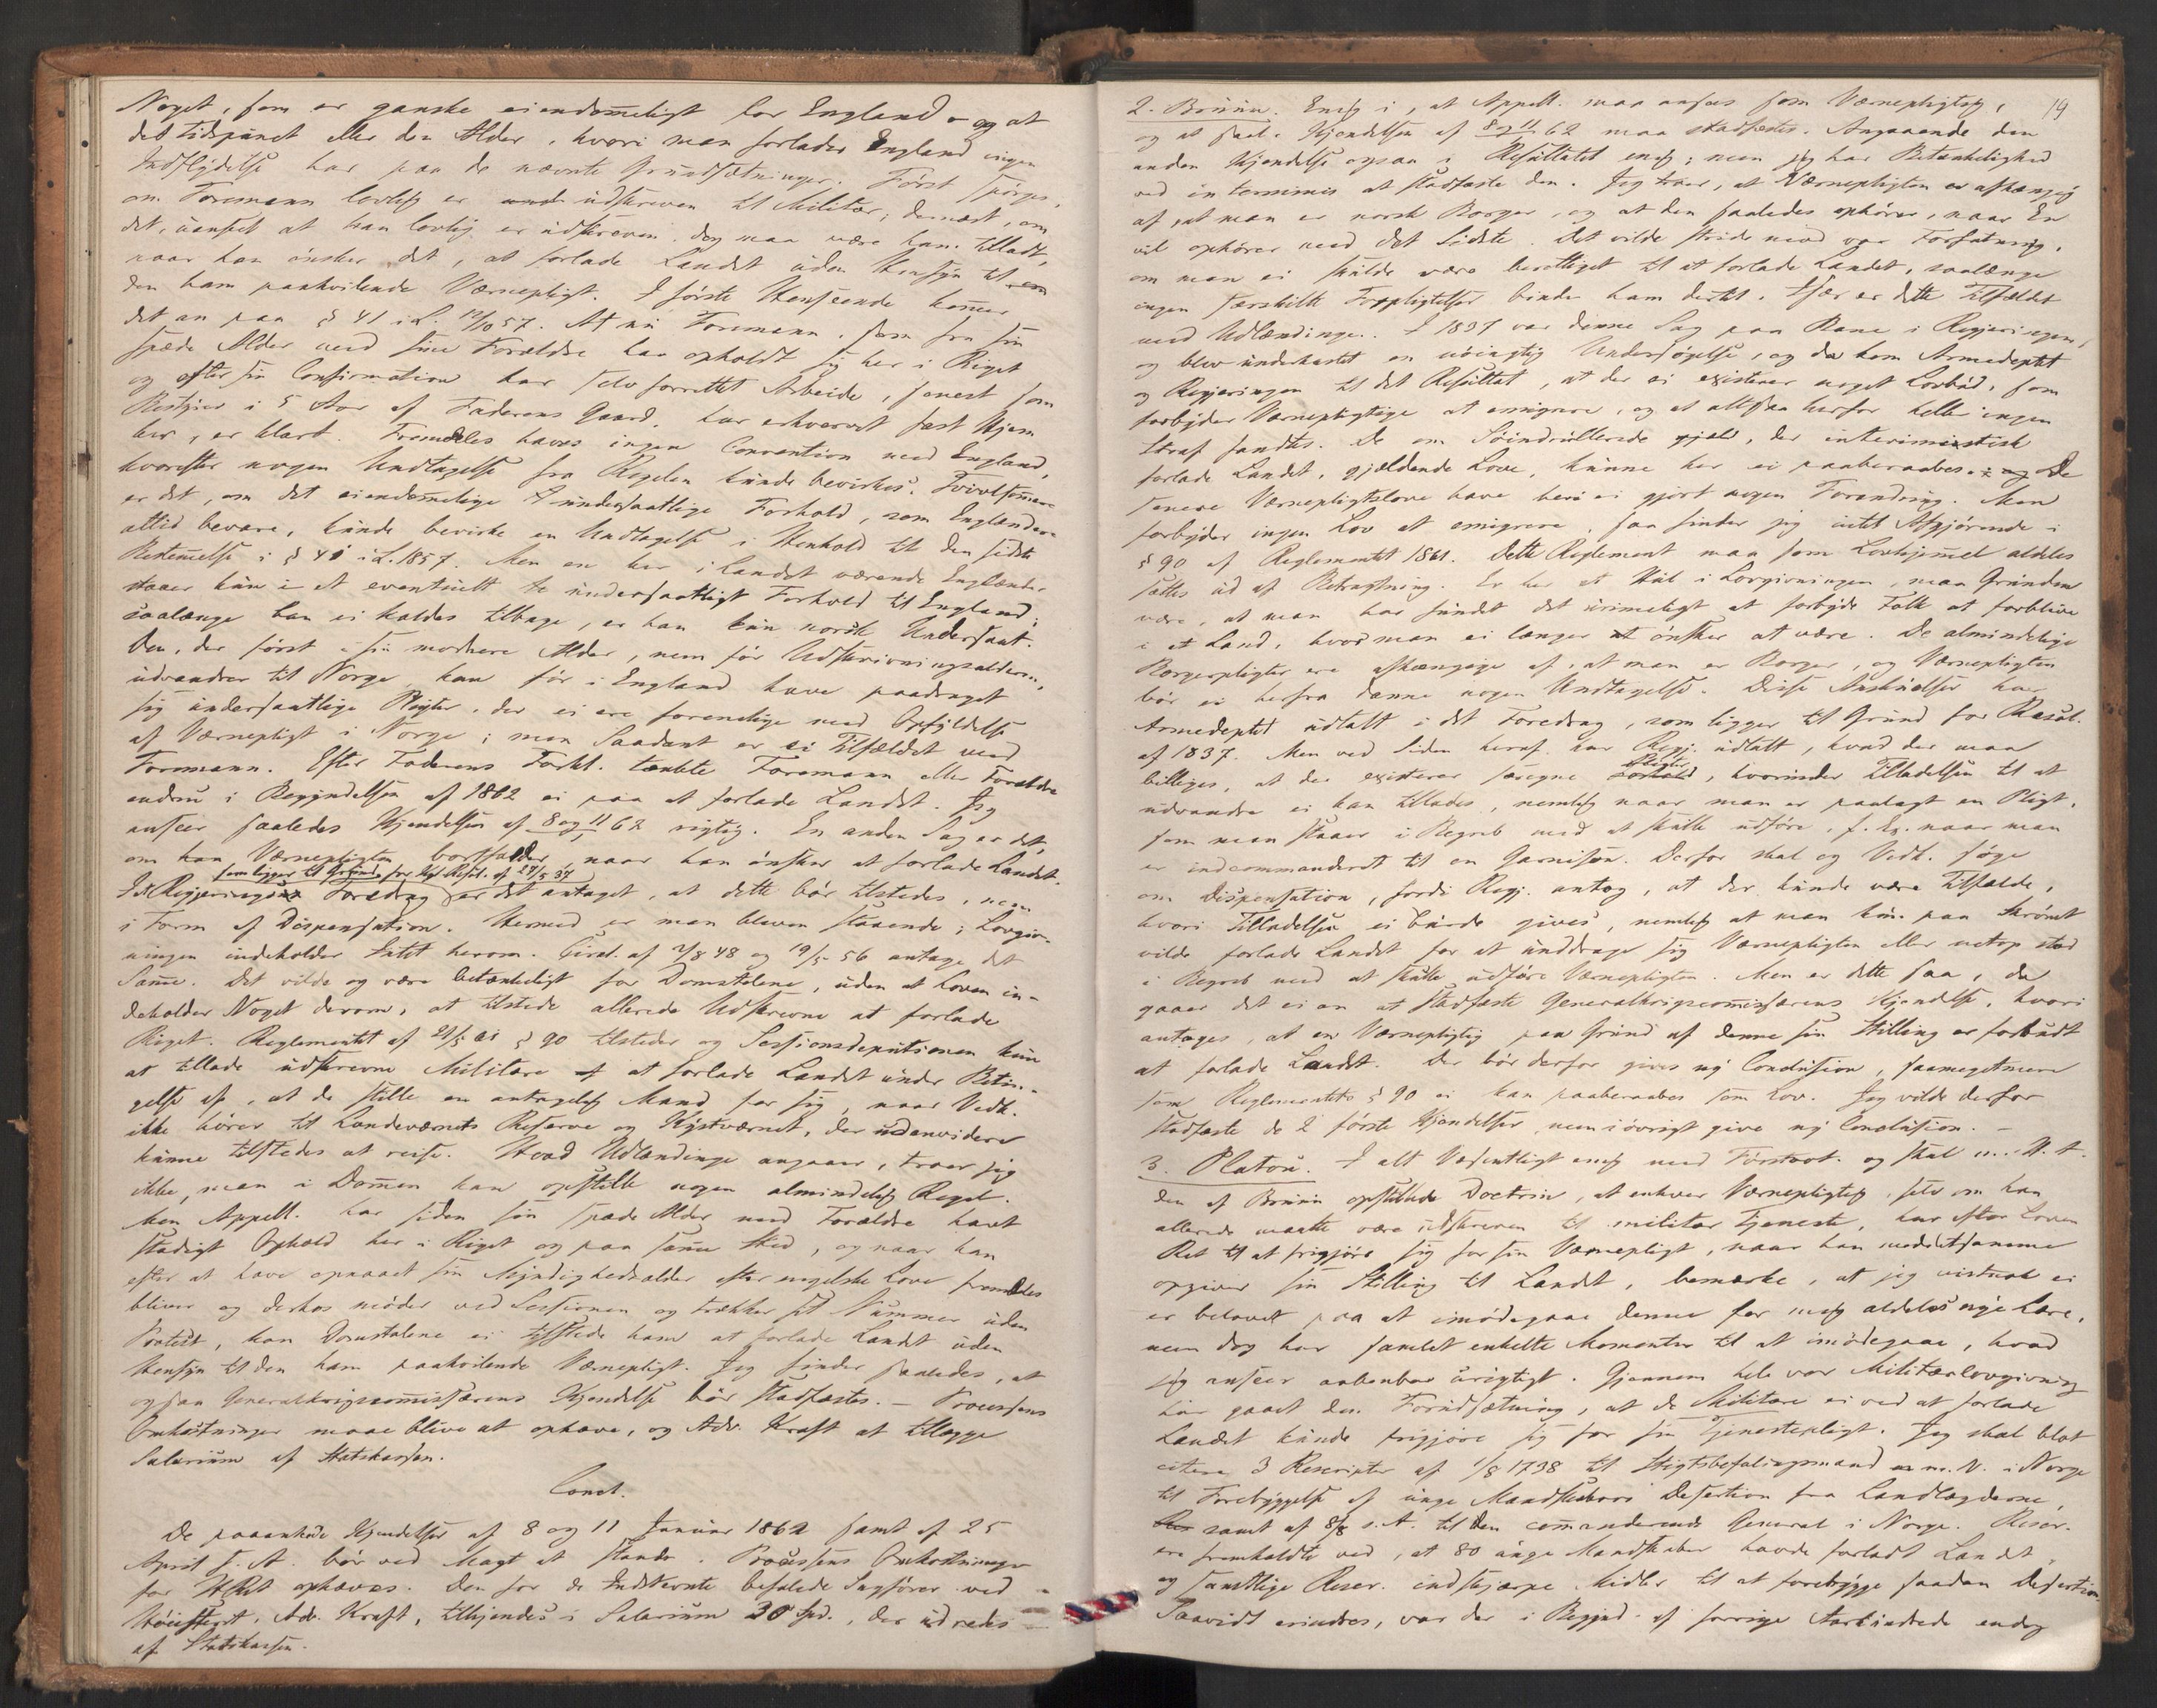 Noget, som er ganske eiendom̅eligt for England – og at
det Tidspunct eller den Alder, hvori man forlader England ingen
Indflydelse har paa de nævnte Grundsætninger. Först spörges,
om Foremann lovlig er udskreven til Militær; dernæst, om
det, uanset at han lovlig er udskreven, dog maa være ham tilladt,
naar han önsker det, at forlade Landet uden Hensyn til
den ham paahvilende Værnepligt. I förste Henseende kom̅er
det an paa § 41 i L. 12/10 57. At nu Foremann, som fra sin
spæde Alder med sine Forældre har opholdt sig her i Riget
og efter sin Confirmation har selv forrettet Arbeide, senest som
Bestyrer i 5 Aar af Faderens Gaard, har erhvervet fast Hjem
her, er klart. Fremdeles haves ingen Convention med England,
hvorefter nogen Undtagelse fra Regelen kunde bevirkes. Tvivlsom̅ere
er det, om det eiendom̅elige undersaatlige Forhold, som Englændere
altid bevare, kunde bevirke en Undtagelse i Henhold til den sidste
Bestem̅else i § 41 i L. 1857. Men en her i Landet værende Englænder
staaer kun i et eventuelt undersaatligt Forhold til England;
saalænge han ei kaldes tilbage, er han kun norsk Undersaat.
Den, der först i sin modnere Alder, men för Udskrivningsalderen,
udvandrer til Norge, kan för i England have paadraget
sig undersaatlige Pligter, der ei ere forenelige med Opfyldelse
af Værnepligt i Norge; men Saadant er ei Tilfældet med
Foremann. Efter Faderens Forkl. tænkte Foremann eller Forældre
endnu i Begyndelsen af 1862 ei paa at forlade Landet. Jeg
anseer saaledes Kjendelsen af 8 og 11/1 62 rigtig. En anden Sag er det,
om han Værnepligten bortfalder, naar han önsker at forlade Landet.
som ligger til Grund for Kgl. Resol. af 29/5 37
I det Regjeringens Foredrag er det antaget, at dette bör tilstedes, men
i Form af Dispensation. Hermed er man bleven staaende; Lovgiv-
ningen indeholder Intet herom. Circul. af 2/8 48 og 19/5 56 antage det
Sam̅e. Det vilde og være betænkeligt for Domstolene, uden at Loven in-
deholder Noget derom, at tilstede allerede Udskrevne at forlade
Riget. Reglementet af 21/5 61 § 90 tilsteder og Sessionsdeputationen kun
at tillade udskrevne Militære at forlade Landet under Betin-
gelse af, at de stille en antagelig Mand for sig, naar Vedk.
ikke hörer til Landeværnets Reserve og Kystværnet, der udenvidere
kunne tilstedes at reise. Hvad Udlændinge angaaer, troer jeg
ikke, man i Dom̅en kan opstille nogen almindelig Regel.
Men Appell. har siden sin spæde Alder med Forældre havt
stadigt Ophold her i Riget og paa sam̅e Sted, og naar han
efter at have opnaaet sin Myndighedsalder efter engelske Love fremdeles
bliver og derhos möder ved Sessionen og trækker sit Nummer uden
Protest, kan Domstolene ei tilstede ham at forlade Landet uden
Hensyn til den ham paahvilende Værnepligt. Jeg finder saaledes, at
ogsaa Generalkrigscom̅issærens Kjendelse bör stadfæstes. – Processens
Omkostninger maae blive at ophæve, og Adv. Kraft at tillægge
Salarium af Statskassen.
Concl.
De paaankede Kjendelser af 8 og 11 Januar 1862 samt af 25
April s. A. bör ved Magt at stande. Processens Omkostninger
for HRet ophæves. Den for de Indstevnte befalede Sagförer ved
Höiesteret, Adv. Kraft, tilkjendes i Salarium 30 Spd., der udredes
af Statskassen.
19
2. Brünn. Enig i, at Appell. maa ansees som Værnepligtig,
og at Kjendelsen af 8 og 11/1 62 maa stadfæstes. Angaaende den
anden Kjendelse ogsaa i Resultatet enig; men jeg har Betænkelighed
ved in terminis at stadfæste den. Jeg troer, at Værnepligten er afhængig
af, at man er norsk Borger, og at den saaledes ophörer, naar En
vil ophörer med det Sidste. Det vilde stride mod vor Forfatning,
om man ei skulde være berettiget til at forlade Landet, saalænge
ingen særskilte Forpligtelser binder ham dertil. Især er dette Tilfældet
med Udlændinge. I 1837 var denne Sag paa Bane i Regjeringen,
og blev underkastet en nöiagtig Undersögelse, og da kom Armedeptet
og Regjeringen til det Resultat, at der ei existerer noget Lovbud, som
forbyder Værnepligtige at emigrere, og at altsaa herfor heller ingen
Straf fandtes. De om Söindrullerede gjæld., der interimistisk
forlade Landet, gjældende Love, kunne her ei paaberaabes. De
senere Værnepligtslove have heri ei gjort nogen Forandring. Men
forbyder ingen Lov at emigrere, saa finder jeg intet Afgjörende i
§ 90 af Reglementet 1861. Dette Reglement maa som Lovhjem̅el aldeles
sættes ud af Betragtning. Er her et Hul i Lovgivningen, maa Grunden
være, at man har fundet det urimeligt at forbyde Folk at forblive
i et Land, hvor man ei længer önsker at være. De almindelige
Borgerpligter ere afhængige af, at man er Borger, og Værnepligten
bör ei herfra danne nogen Undtagelse. Disse Anskuelser har
Armedeptet udtalt i det Foredrag, som ligger til Grund for Resol.
af 1837. Men ved Siden heraf har Regj. udtalt, hvad der maa
billiges, at der existerer særegne Pligter, hvorunder Tilladelsen til at
udvandre ei kan tillades, nemlig naar man er paalagt en Pligt,
som man staaer i Begreb med at skulle udföre, f. Ex. naar man
er indcommanderet til en Garnison. Derfor skal og Vedk. söge
om Dispensation, fordi Regj. antog, at der kunde være Tilfælde,
hvori Tilladelsen ei burde gives, nemlig at man kun paa Skrömt
vilde forlade Landet for at unddrage sig Værnepligten eller netop stod
i Begreb med at skulle udföre Værnepligten. Men er dette saa, da
gaaer det ei an at stadfæste Generalkrigscom̅issærens Kjendelse, hvori
antages, at en Værnepligtig paa Grund af denne sin Stilling er forbudt
at forlade Landet. Der bör derfor gives ny Conclusion, saameget mere
som Reglementets § 90 ei kan paaberaabes som Lov. Jeg vilde derfor
stadfæste de 2 förste Kjendelser, men iövrigt give ny Conclusion. –
3. Platou. I alt Væsentligt enig med Förstvot. og skal m. H. t.
den af Brünn opstillede Doctrin, at enhver Værnepligtig, selv om han
allerede maatte være udskreven til militær Tjeneste, har efter Loven
Ret til at frigjöre sig for sin Værnepligt, naar han med detsamme
opgiver sin Stilling til Landet, bemærke, at jeg vistnok ei
er belavet paa at imödegaae denne for mig aldeles nye Lære,
men dog har samlet enkelte Momenter til at imödegaae, hvad
jeg anseer aabenbar urigtigt. Gjennem hele vor Militærlovgivning
har gaaet den Forudsætning, at de Militære ei ved at forlade
Landet kunde frigjöre sig for sin Tjenestepligt. Jeg skal blot
citere 3 Rescripter af 1/8 1738 til Stigtsbefalingsmand m. V. i Norge
til Forebyggelse af unge Mandskabers Desertion fra Landlægderne,
samt af 8/8 s. A. til den com̅anderende General i Norge. Reser.
ere fremkaldte ved, at 80 unge Mandskaber havde forladt Landet,
og samtlige Rescr. indskjærpe Midler til at forebygge saadan Desertion.
Saavidt erindres, var der i Begynd. af forrige Aarhundrede endog